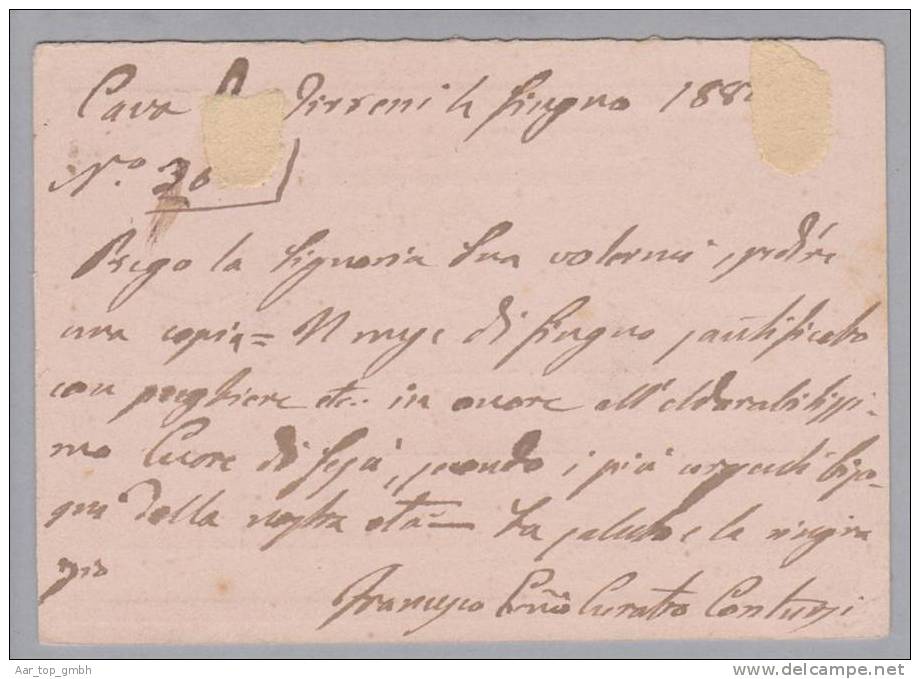 Cava Tirreni li Giugno 188
N.o 30
Prego la Signoria Sua volermi spedire
una copia = Il mese di Giugno santificato
con preghiere etc.. in onore all'adorabilissi-
mo Cuore di Gesù, secondo i più urgenti biso-
gni della nostra età — La saluto e la ringra
zio
Francesco Can.co Curato Conturzi
Aar_top_gmbh
delcampe.net